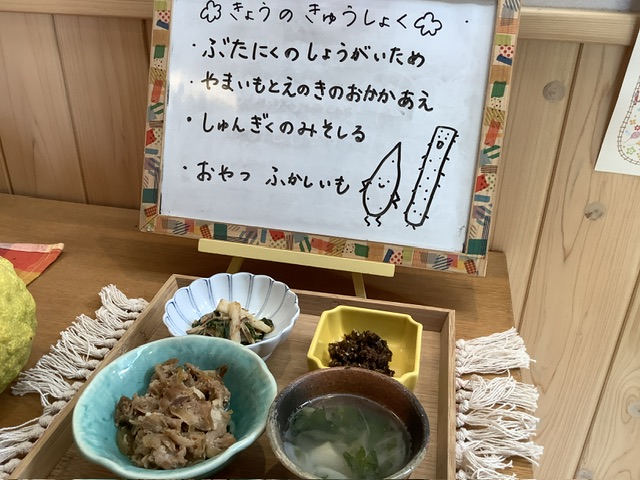 きょうの きゅうしょく
・ぶたにくのしょうがいため
・やまいもとえのきのおかかあえ
・しゅんぎくのみそしる
・おやつ ふかしいも